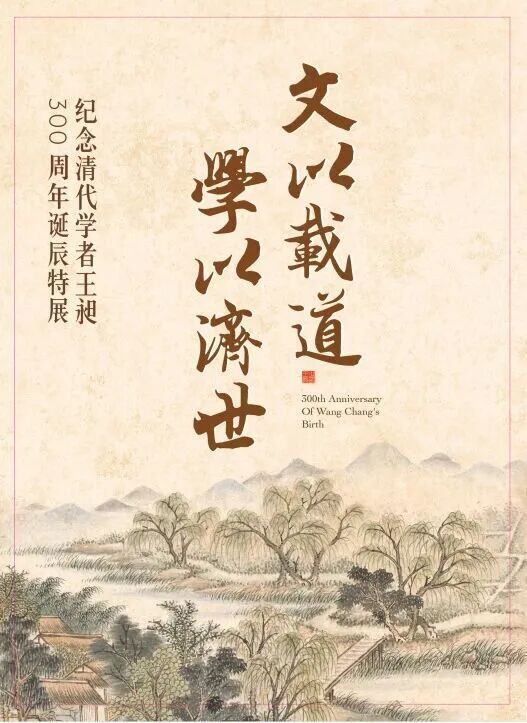 文以載道
學以濟世
纪念清代学者王昶
300周年诞辰特展
300th Anniversary
Of Wang Chang's
Birth